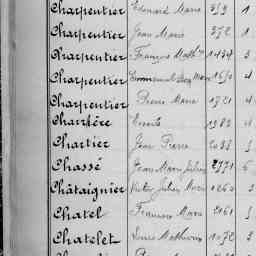 Charpentier Edouard Marie 353 1
Charpentier Jean Marie 372 1
Charpentier François Math 1434 3
Charpentier Emmanuel Marie 1650 4
Charpentier Pierre Marie 1721 4
Charrière 1982 4
Chartier Jean Pierre 2088 5
Chassé Jean Marie Julien 2771 6
Châtaignier Victor Julien Marie 1260 3
Chatel François Marie 2161 5
Chatelet Louis Mathurin 1072 3